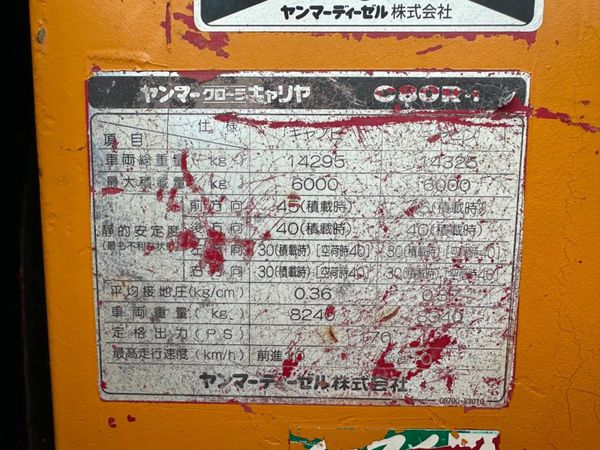 ヤンマーディーゼル株式会社
ヤンマークローラキャリヤ C60R-1
項目 仕様
車両総重量(kg) 14295 14325
最大積載量(kg) 6000 6000
静的安定度 前方向 45(積載時) (積載時)
(最も不利な状 後方向 40(積載時) 40(積載時)
左方向 30(積載時)[空荷時40] 30(積載時)[空荷時40]
右方向 30(積載時)[空荷時40] 30(積載時)[空荷時40]
平均接地圧(kg/cm) 0.36
車両重量(kg) 8240
定格出力(PS)
最高走行速度(km/h) 前進
ヤンマーディーゼル株式会社